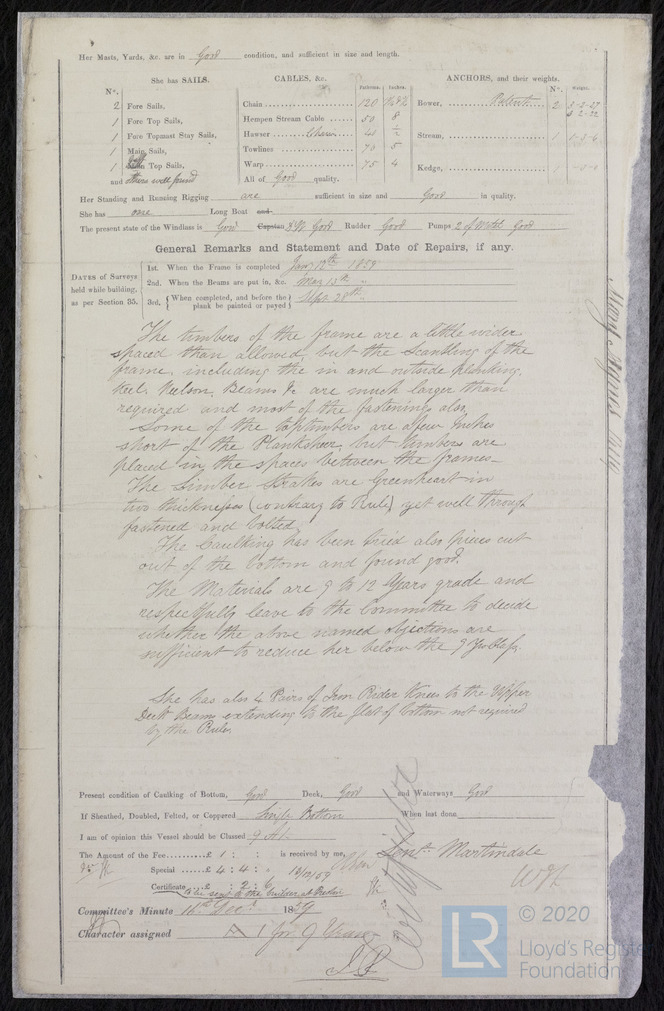 Her Masts, Yards, &c. are in Good condition, and sufficient in size and length.
She has SAILS. CABLES, &c. ANCHORS, and their weights.
N°. Fathoms. Inches. N°. Weight.
2 Fore Sails, Chain 120 Bower, Patent 2
1 Fore Top Sails, Hempen Stream Cable 50 8
1 Fore Topmast Stay Sails, Hawser Chain Stream, 1
1 Main Sails, Towlines 70 5
1 Top Sails, Warp 75 4 Kedge, 1
and others well found All of Good quality.
Her Standing and Running Rigging are sufficient in size and Good in quality.
She has one Long Boat and
The present state of the Windlass is Good Capstan Good Rudder Good Pumps 2 of Metal Good
General Remarks and Statement and Date of Repairs, if any.
DATES of Surveys held while building, as per Section 35.
1st. When the Frame is completed Jany 12th 1859
2nd. When the Beams are put in, &c. May 13th "
3rd. {When completed, and before the plank be painted or payed} Sept. 28th
The timbers of the frame are a little wider
spaced than allowed, but the Scantling of the
frame, including the in and outside planking,
Keel, Keelson, Beams &c are much larger than
required and most of the fastenings also.
Some of the toptimbers are a few Inches
short of the Planksheer, but timbers are
placed in the spaces between the frames—
The Limber Strakes are Greenheart in
two thicknesses (contrary to Rule) yet well through
fastened and bolted
The Caulking has been tried also pieces cut
out of the bottom and found good.
The Materials are 9 to 12 Years grade and
respectfully leave to the Committee to decide
whether the above named objections are
sufficient to reduce her below the 9 Yrs Class.
She has also 4 Pairs of Iron Rider Knees to the Upper
Deck Beams extending to the flat of bottom not required
by the Rules
Present condition of Caulking of Bottom, Good Deck, Good and Waterways Good
If Sheathed, Doubled, Felted, or Coppered Single Bottom When last done
I am of opinion this Vessel should be Classed 9 A1
The Amount of the Fee £ 1 : : is received by me,
Special £ 4 : 4 : 13/12/59 Martindale
Certificate £ : 2 : 6
to be sent to the Builder at
Committee's Minute 16th Decr 1859
Character assigned A 1 for 9 Years
LR
© 2020
Lloyd's Register
Foundation